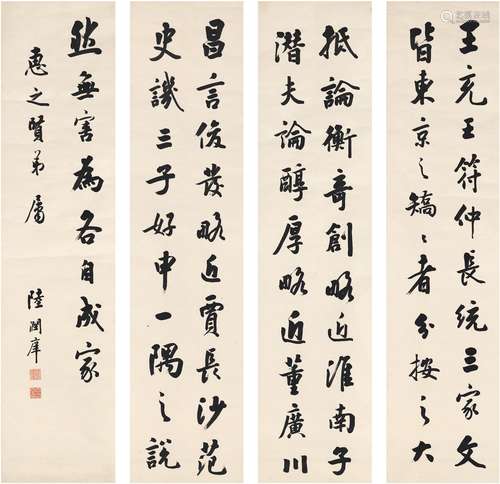 王充王符仲長統三家文
皆東京之矯〻者分按之大
抵論衡奇創略近淮南子
潛夫論醇厚略近董廣川
昌言俊發略近賈長沙范
史譏三子好申一隅之說
然無害為各自成家
惠之賢弟屬
陸潤庠